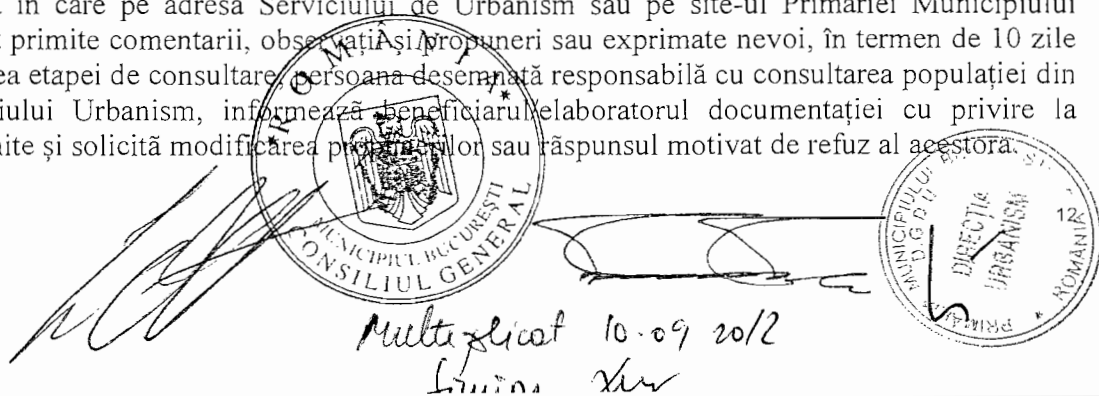 în care pe adresa Serviciului de Urbanism sau pe site-ul Primăriei Municipiului
primite comentarii, observații și propuneri sau exprimate nevoi, în termen de 10 zile
ea etapei de consultare, persoana desemnată responsabilă cu consultarea populației din
iului Urbanism, informează beneficiarul/elaboratorul documentației cu privire la
ite și solicită modificarea propunerilor sau răspunsul motivat de refuz al acestora.
* ROMÂNIA *
MUNICIPIUL BUCUREȘTI
CONSILIUL GENERAL
MUNICIPIULUI
D.G.D.U.
DIRECȚIA
URBANISM
12
* ROMÂNIA
Multiplicat 10.09 2012